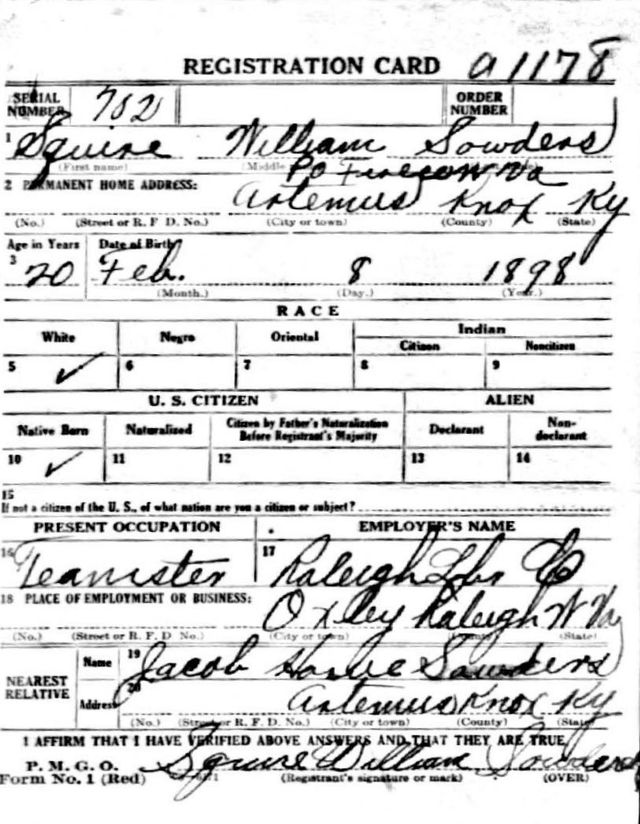 REGISTRATION CARD A1178
SERIAL NUMBER 702 ORDER NUMBER
1 Squire William Sowders
(First name) (Middle
PO W Va
2 PERMANENT HOME ADDRESS: Artemus Knox Ky
(No.) (Street or R. F. D. No.) (City or town) (County) (State)
Age in Years Date of Birth
3 20 Feb. 8 1898
(Month.) (Day.) (Year.)
RACE
White Negro Oriental Indian
Citizen Noncitizen
5 ✓ 6 7 8 9
U. S. CITIZEN ALIEN
Native Born Naturalized Citizen by Father's Naturalization Before Registrant's Majority Declarant Non-declarant
10 ✓ 11 12 13 14
15
If not a citizen of the U. S., of what nation are you a citizen or subject?
PRESENT OCCUPATION EMPLOYER'S NAME
16 Teamster 17 Raleigh Lbr Co
18 PLACE OF EMPLOYMENT OR BUSINESS:
Oxley Raleigh W Va
(No.) (Street or R. F. D. No.) (City or town) (County) (State)
NEAREST RELATIVE Name 19 Jacob Sowders
Address 20 Artemus Knox Ky
(No.) (Street or R. F. D. No.) (City or town) (County) (State)
I AFFIRM THAT I HAVE VERIFIED ABOVE ANSWERS AND THAT THEY ARE TRUE
P. M. G. O. Squire William Sowders
Form No. 1 (Red) (Registrant's signature or mark) (OVER)